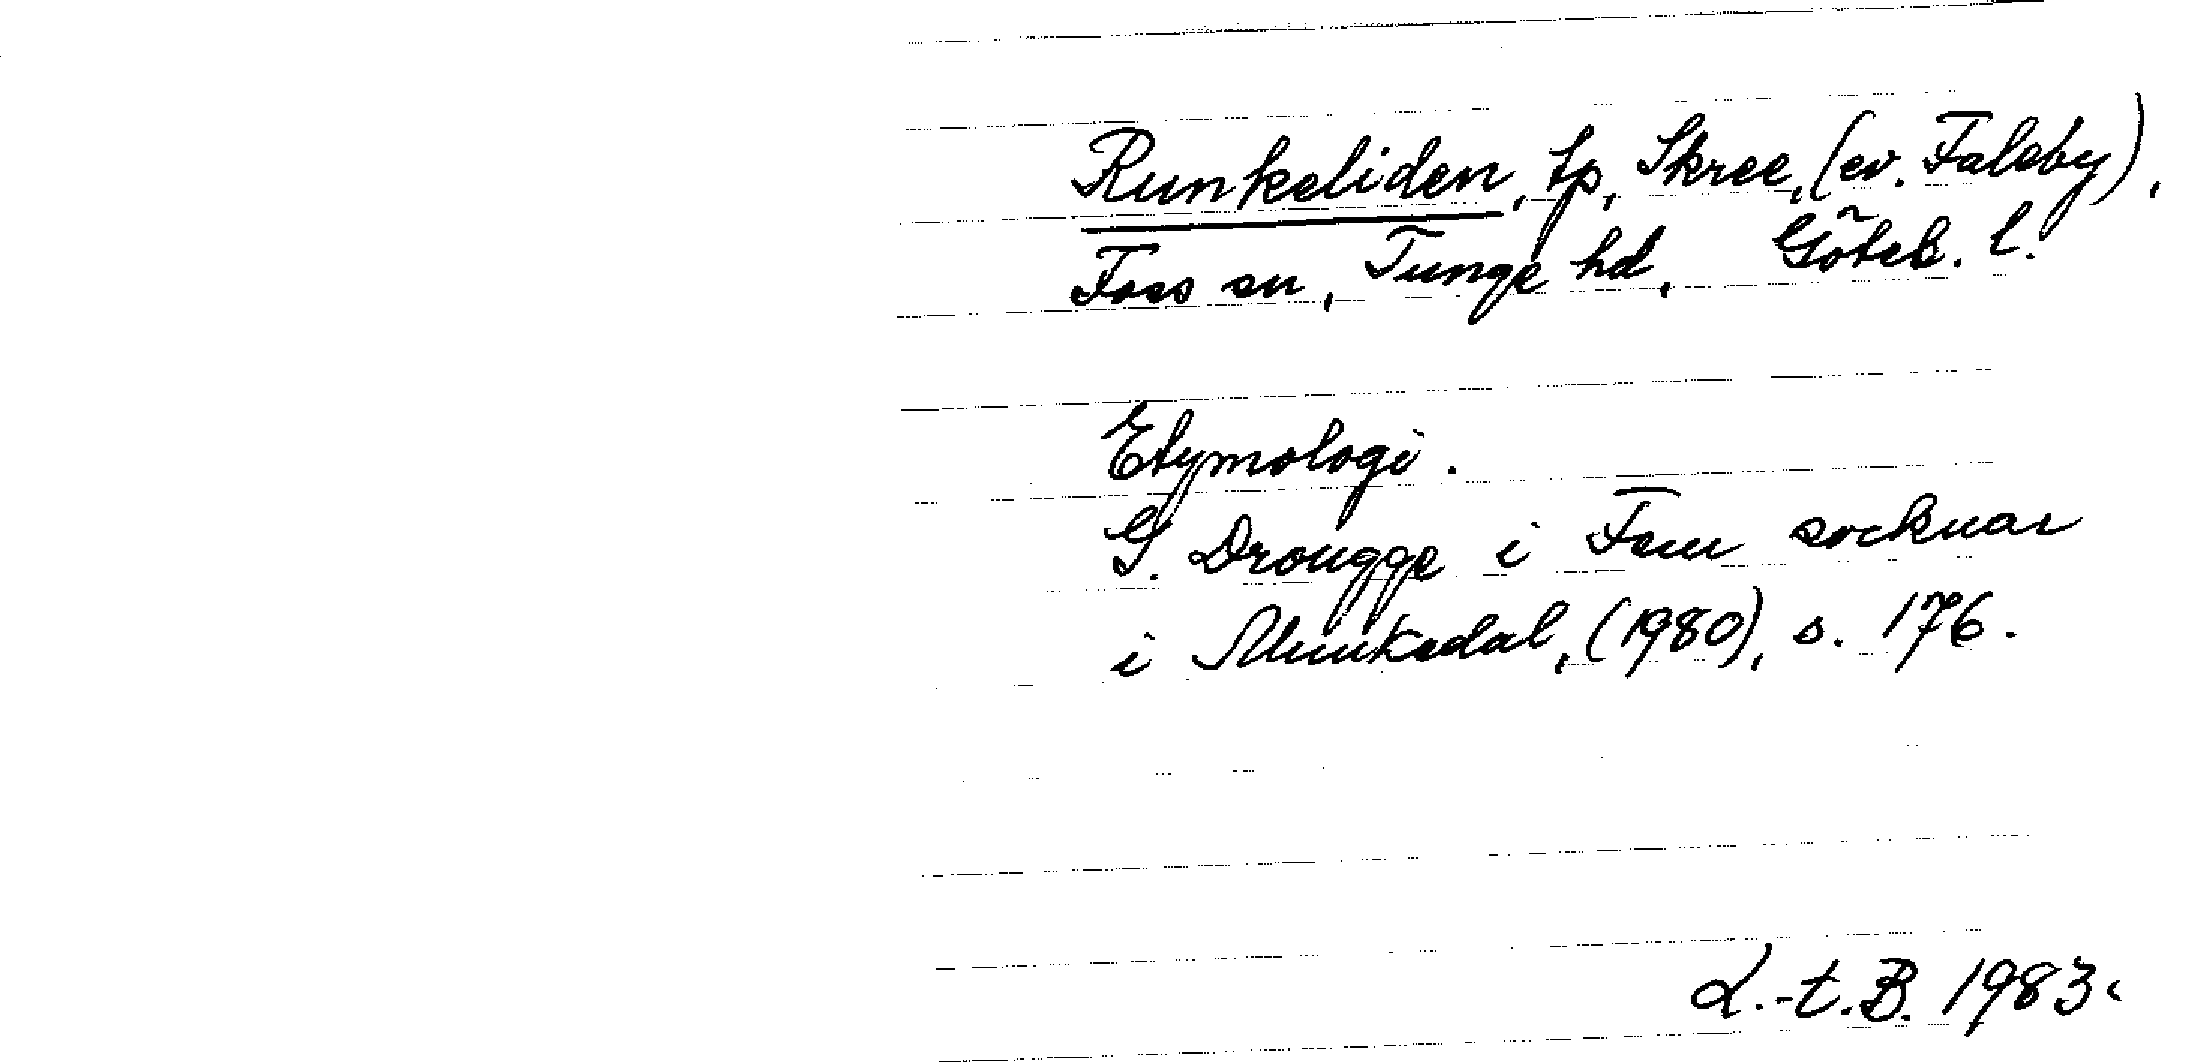 Runkeliden, tp, Skree, (ev. Faleby),
Foss sn, Tunge hd, Göteb. l.
Etymologi.
G. Drougge i Fem socknar
i Munkedal, (1980), s. 176.
L.-t.B. 1983.